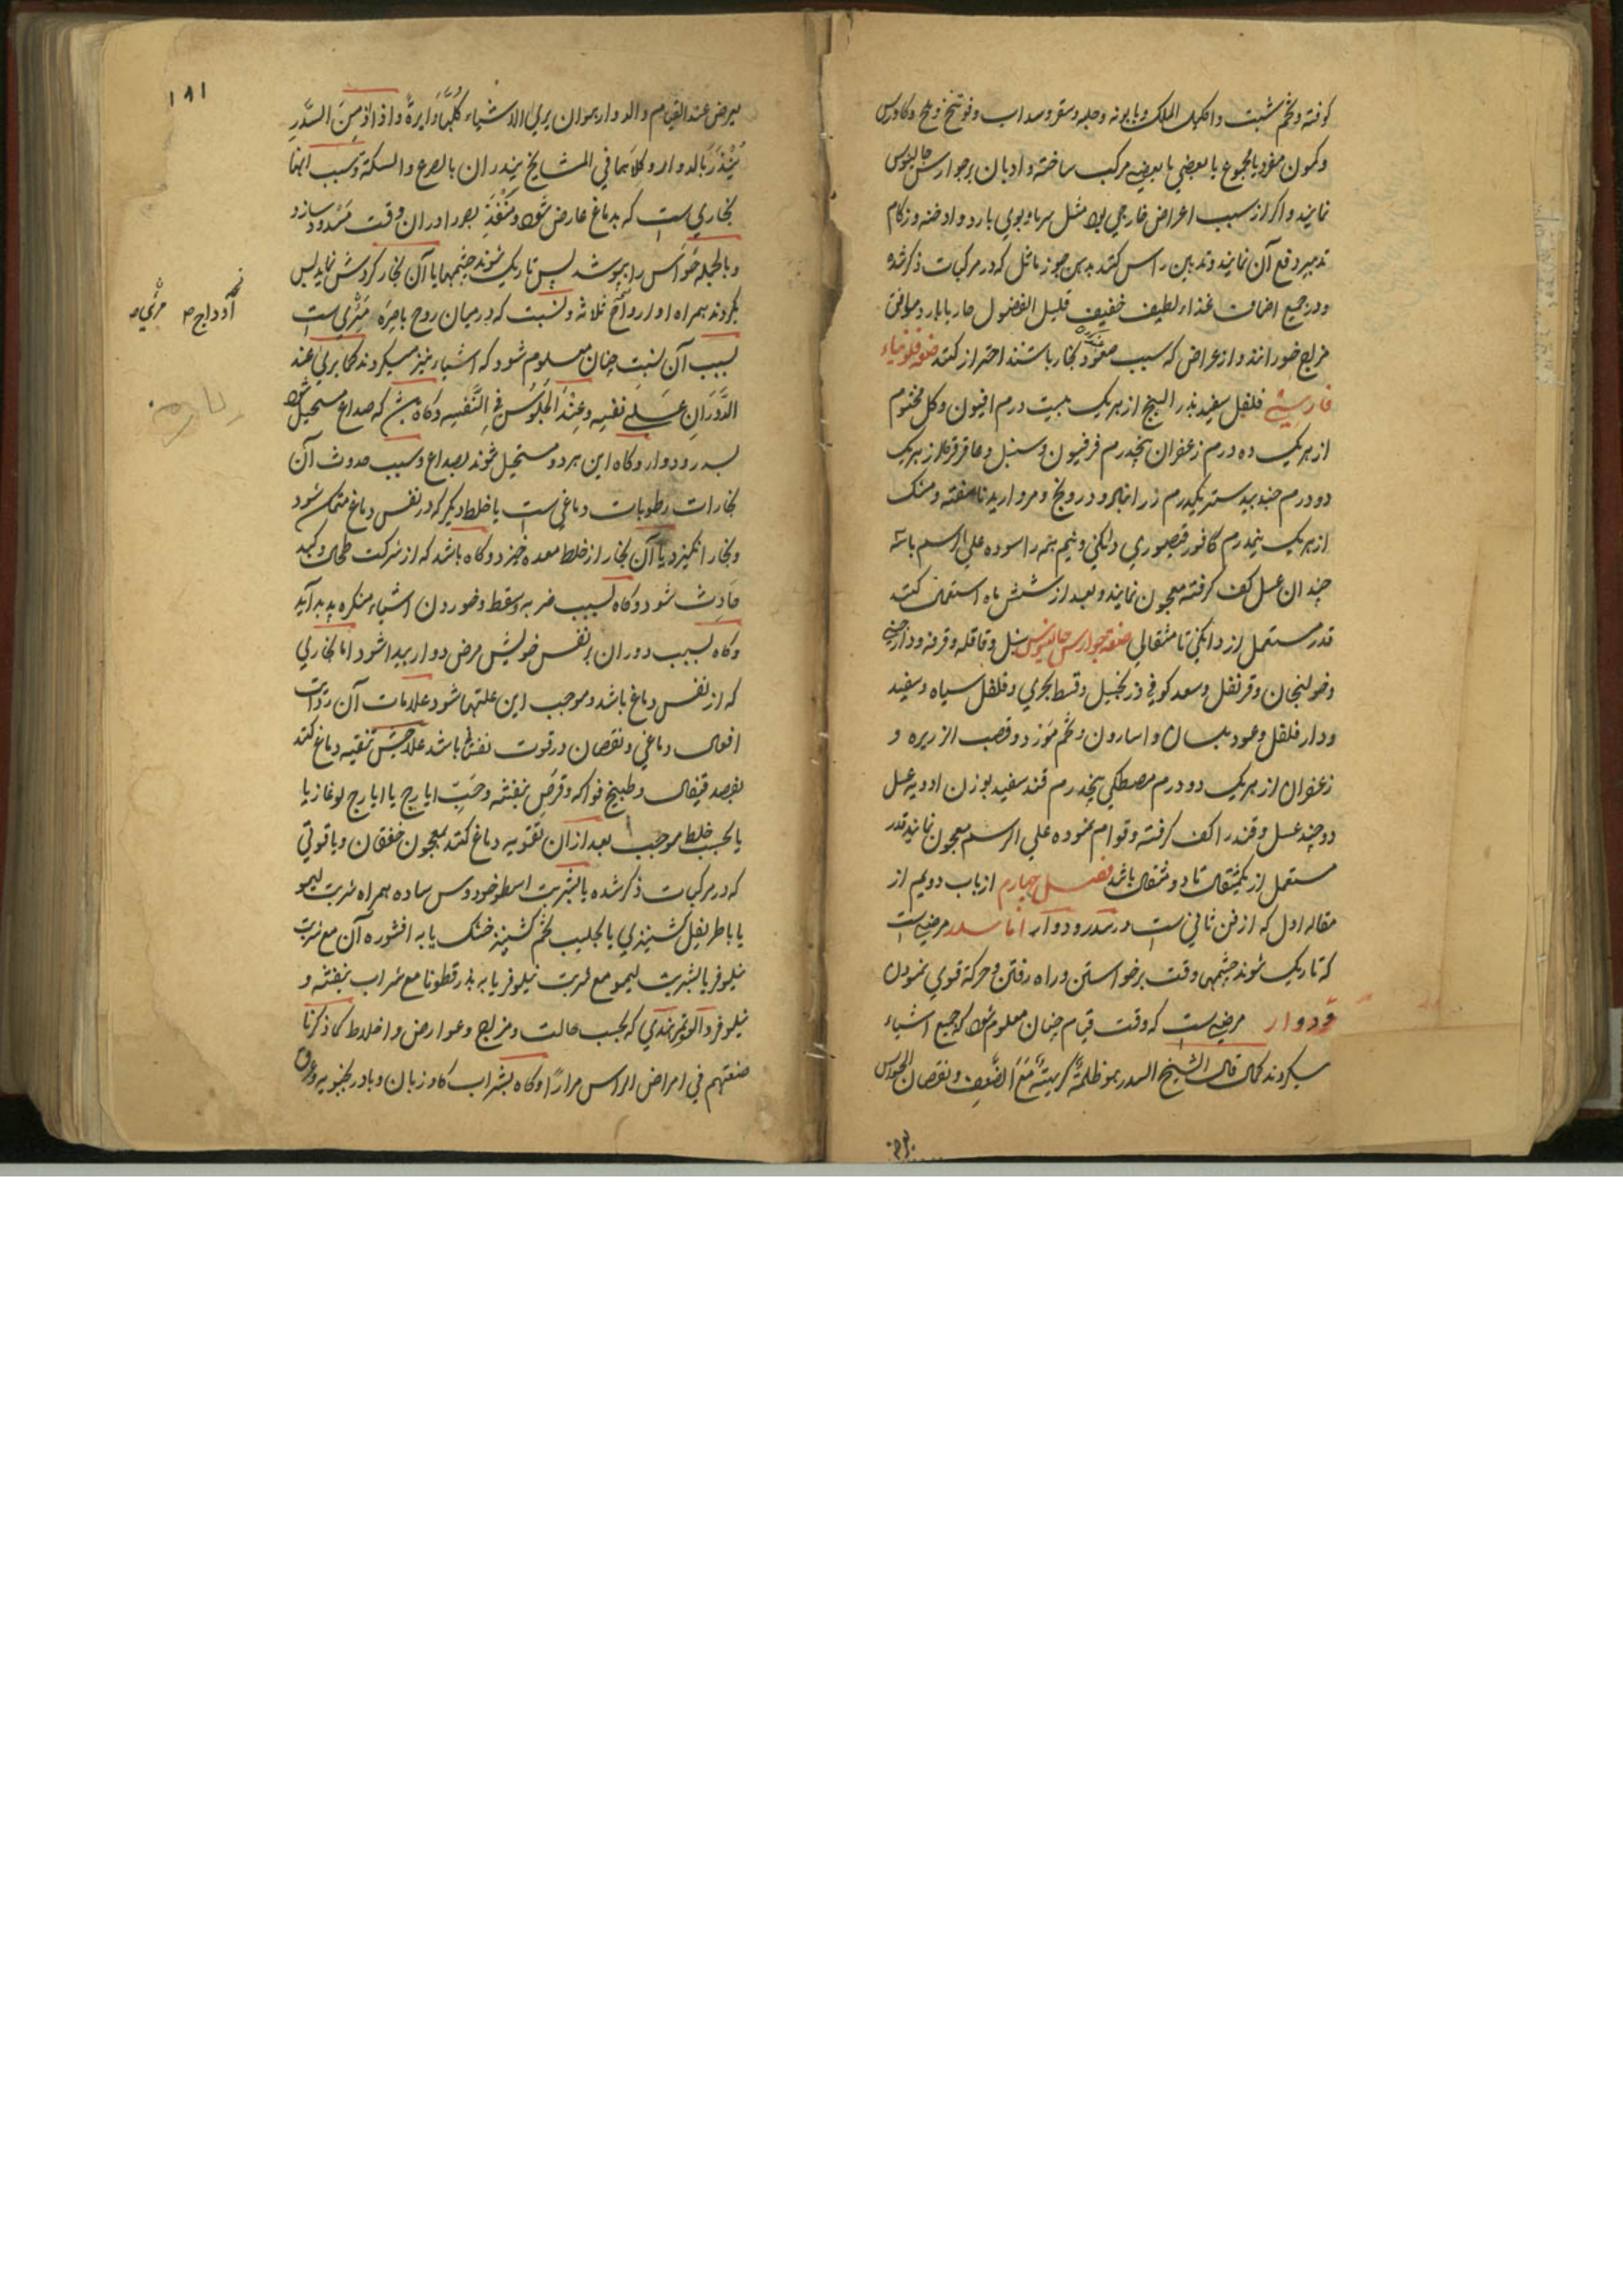 کوفته و تخم شبت و اکلیل الملک و بابونه و حلبه و سقر و سداب و فوتنج و وج و کاورس
و کمون مفرد یا مجموع یا بعضی با بعضی مرکب ساخته و ادیان بر جوارس جالینوس
نمایند و اکر از سبب اعراض خارجی بود مثل سرما و بوی بارد و ادخنه و زکام
تدبیر دفع آن نمایند و تدهین راس کنند بدهن جوز ماثل که در مرکبات ذکر شده
و در جمیع اضافت غذاء لطیف خفیف قلیل الفضول حار یا بارد موافق
مزاج خورانند و از عراض که سبب بخار باشند احتراز کنند صفة فلونیاء
فارسی فلفل سفید بذر البنج از هر یک بیست درم افیون و کل مختوم
از هر یک ده درم زعفران پنجدرم فرفیون و سنبل و عاقرقرحا از هر یک
دو درم جندبیدستر یکدرم زرانباد و درونج و مروارید ناسفته و مشک
از هر یک نیمدرم کافور قیصوری دانکی و نیم همه را سوده علی الرسم باسه
چندان عسل کف کرفته معجون نمایند و بعد از شش ماه استعمال کنند
قدر مستعمل از دانکی تا مثقالی صفة جوارس جالینوس سنبل و قاقله و قرفه و دارچینی
و خولنجان و قرنفل و سعد کوفی و زنجبیل و قسط بحری و فلفل سیاه و سفید
و دار فلفل و عود بلسان و اسارون و تخم مورد و قصب الزریره و
زعفران از هر یک دو درم مصطکی پنجدرم قند سفید بوزن ادویه عسل
دو چند عسل و قند را کف کرفته و قوام نموده علی الرسم معجون نمایند قدر
مستعمل از یکمثقال تا دو مثقال باشد فصل چهارم از باب دویم از
مقاله اول که از فن ثانی است در سدر و دوار اما سدر مرضی است
که تاریک شوند چشمها وقت برخواستن و راه رفتن و حرکة قوی نمودن
و دوار مرضی است که وقت قیام چنان معلوم شود که جمیع اشیاء
میکردند کما قال الشیخ السدر هو ظلمة کریهة مع الضعف و نقصان الحواس
۱۸۱
یعرض عند القیام و الدوار هو ان یری الاشیاء کلها دایرة و اذا ازمن السدر
ینذر بالدوار و کلاهما فی المشایخ ینذران بالصرع و السکتة و سبب انها
بخاری است که بدماغ عارض شود و منفذ بصر را در ان وقت مسدود سازد
و بالجمله حواس را بپوشد پس تاریک شوند چشمها یا آن بخار کردش نماید پس
بکردند همراه او ارواح ثلاثه و نسبت که در میان روح باصره مرئی است
بسبب آن نسبت چنان معلوم شود که اشیاء نیز میکردند کما یری عند
الدوران علی نفسه و عند الجلوس فی السفینه و کاه باشد که صداع مستحیل شود
بسدر و دوار و کاه این هر دو مستحیل شوند بصداع و سبب حدوث آن
بخارات رطوبات دماغی است یا خلط دیکر که در نفس دماغ متمکن شود
و بخار انکیزد یا آن بخار از خلط معده خیزد و کاه باشد که از شرکت طحال و کبد
حادث شود و کاه بسبب ضربه و سقطه و خوردن اشیاء منکره پدید آید
و کاه بسبب دوران بر نفس خویش مرض دوار پیدا شود اما بخاری
که از نفس دماغ باشد و موجب این علتها شود علامات آن
افعال دماغی و نقصان در قوت نفسانی باشد علاجش تنقیه دماغ کنند
بفصد قیفال و طبیخ فواکه و قرص بنفشه و حب ایارج یا ایارج لوغازیا
یا بحسب خلط موجب بعد از ان تقویه دماغ کنند بمعجون خفقان و یاقوتی
که در مرکبات ذکر شده یا بشربت اسطوخودوس ساده همراه شربت لیمو
یا باطریفل کشنیزی یا بجلیب تخم کشنیز خشک یا به افشوره آن مع شربت
نیلوفر یا بشربت لیمو مع شربت نیلوفر یا به بذرقطونا مع شراب بنفشه و
نیلوفر و آلو و تمر هندی که بحسب حالت و مزاج و عوارض و اخلاط کما ذکرنا
صنعتهم فی امراض الراس مراراً و کاه بشراب کاو زبان و بادرنجبویه و عرق
اوداج مرئی